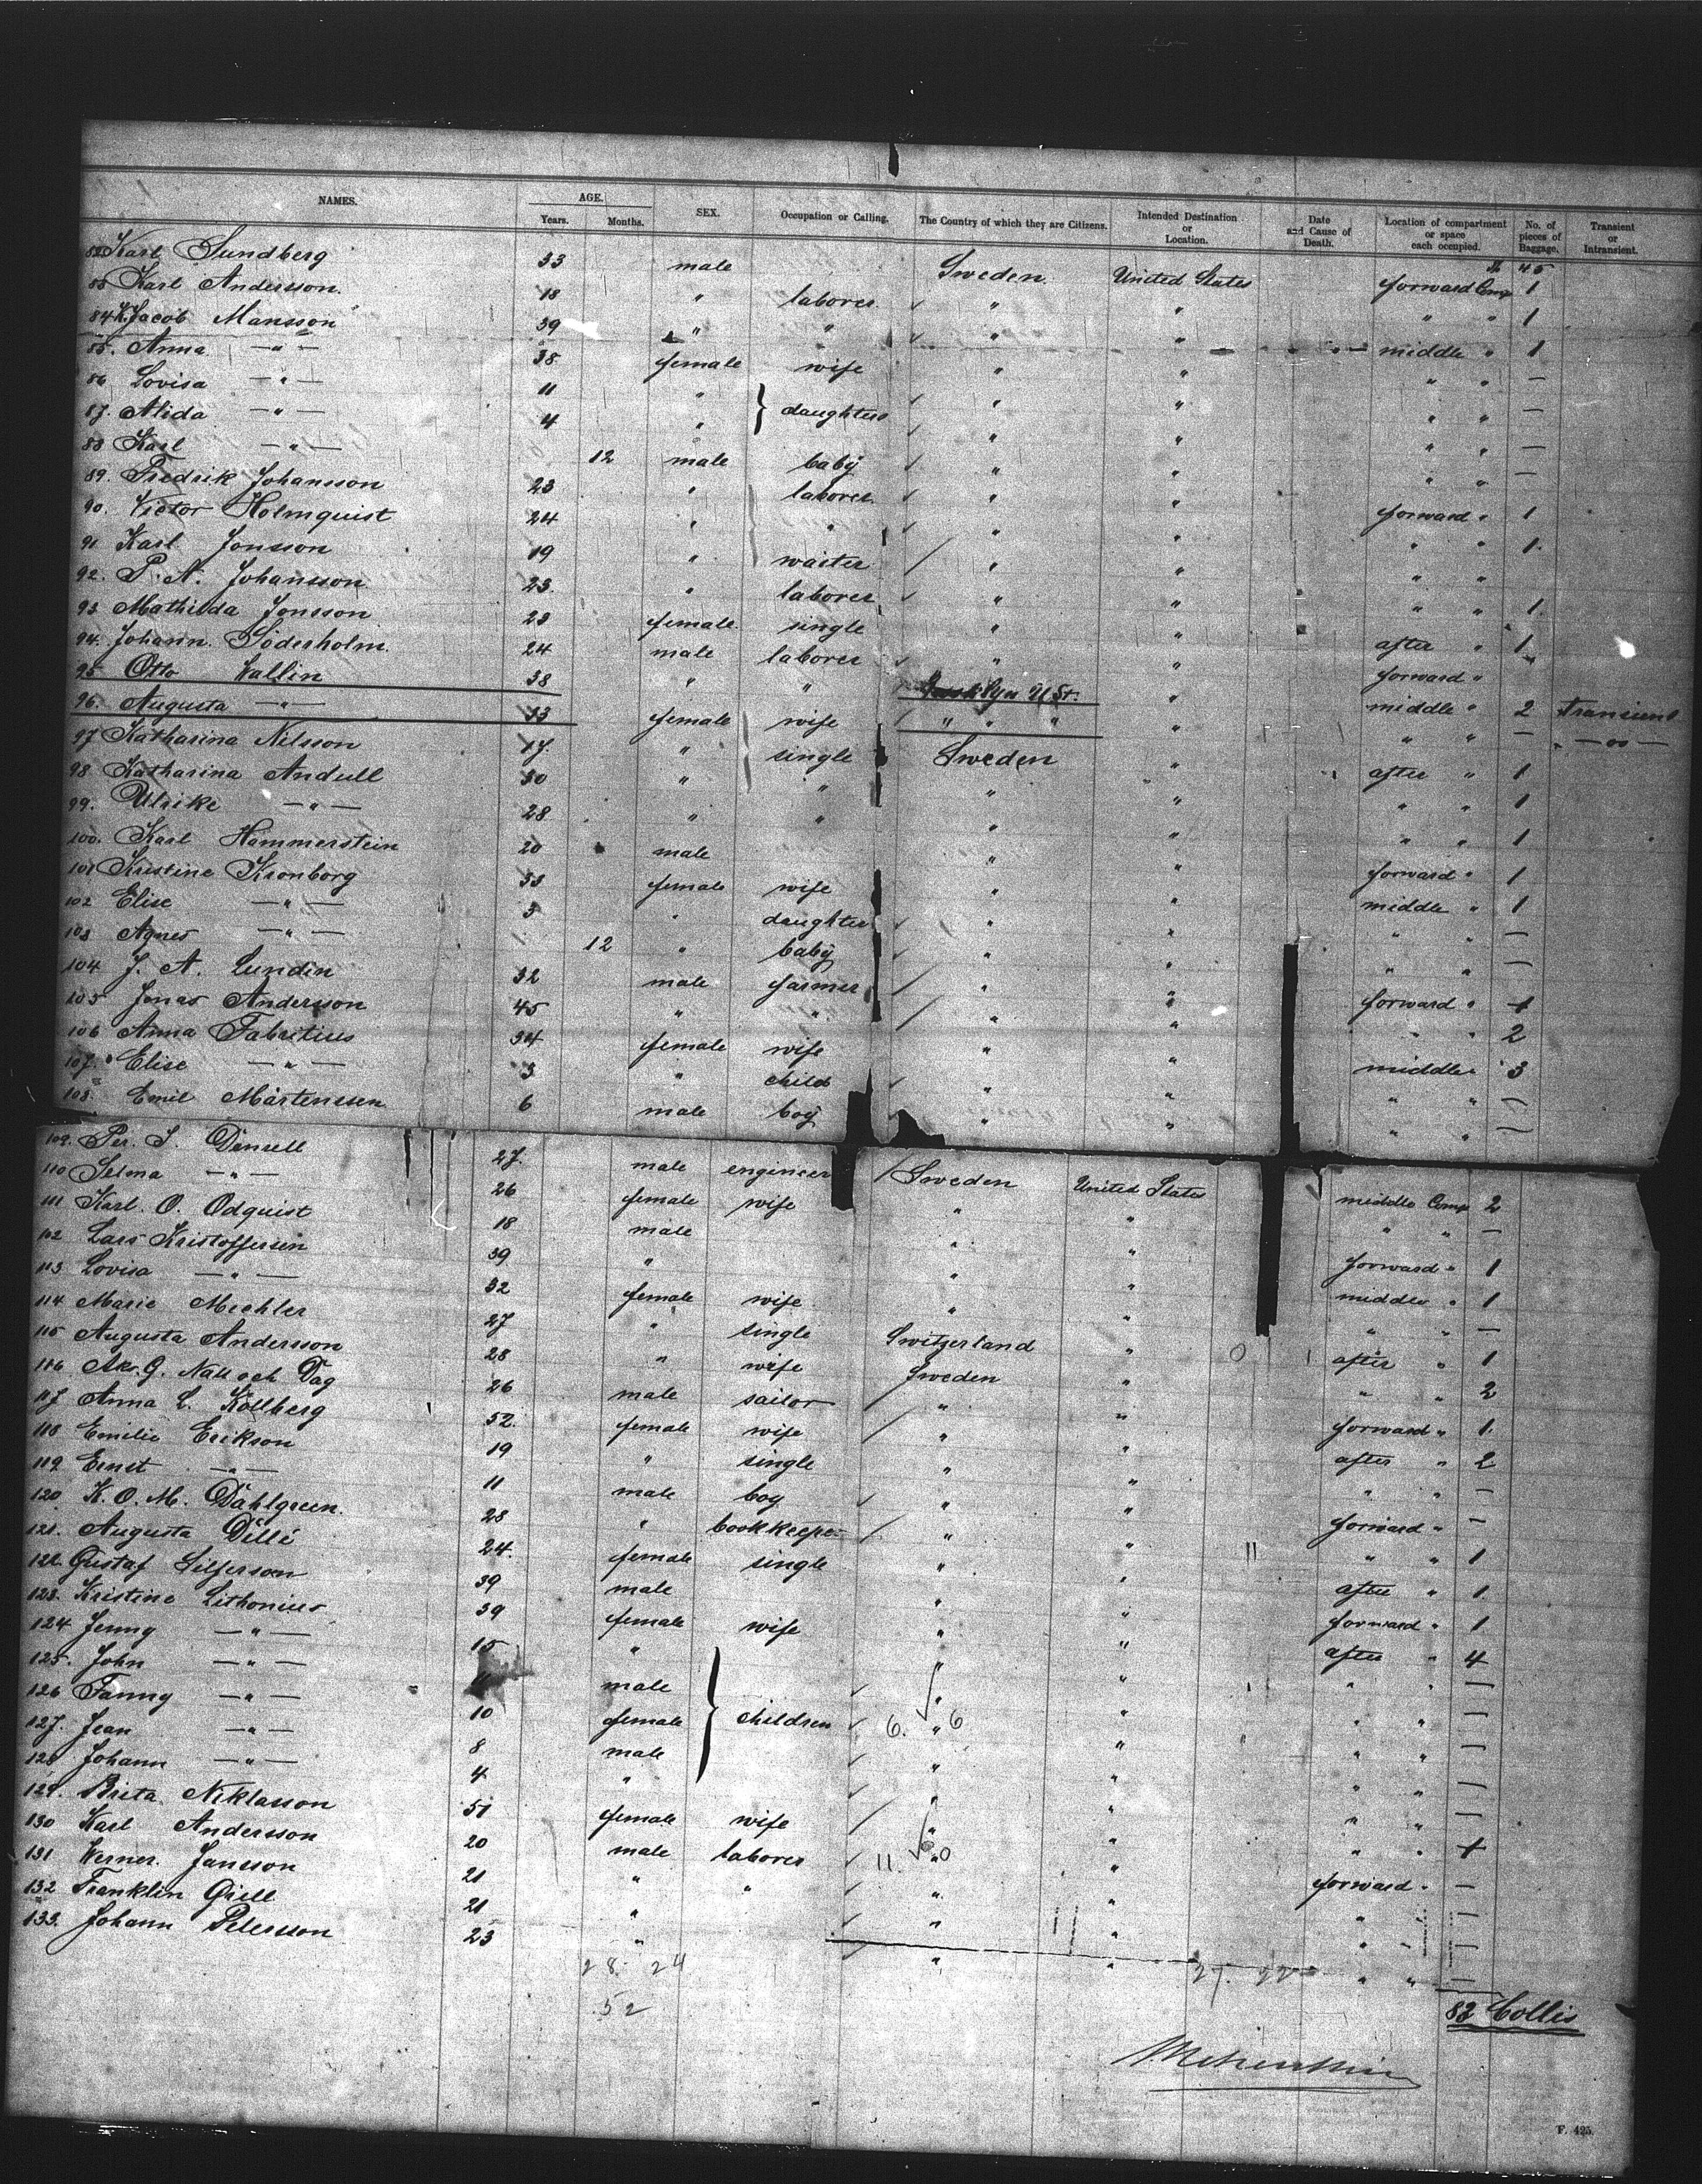 NAMES. AGE. Years. Months. SEX. Occupation or Calling. The Country of which they are Citizens. Intended Destination or Location. Date and Cause of Death. Location of compartment or space each occupied. No. of pieces of Baggage. Transient or Intransient.
45
82 Karl Sundberg 33 male Sweden United States forward Comp 1
83 Karl Andersson 18 " laborer " " " " 1
84 K. Jacob Mansson 39 " " " " middle " 1
85. Anna —"— 38 female wife " " " " —
86 Lovisa —"— 11 " } daughters " " " " —
87. Alida —"— 4 " " " " " —
88 Karl —"— 12 male baby " " " " —
89. Fredrik Johansson 23 " laborer " " forward " 1
90. Victor Holmquist 24 " " " " " " 1.
91 Karl Jonsson 19 " waiter " " " "
92. P. A. Johansson 23. " laborer " " " " 1.
93 Mathilda Jonsson 23 female single " " after " 1
94. Johann Söderholm 24 male laborer " " forward "
95 Otto Wallin 38 " " Brooklyn U St. " middle " 2 Transient
96. Augusta —"— 33 female wife " " " " " " — —"—
97 Katharina Nilsson 17. " single Sweden " after " 1
98 Katharina Andell 30 " " " " " " 1
99. Ulrike —"— 28 " " " " " " 1
100. Karl Hammerstein 20 male " " forward " 1
101 Kristine Kronborg 33 female wife " " middle " 1
102 Elise —"— 3 " daughter " " " " —
103 Agnes —"— 12 " baby " " " " —
104 J. A. Lundin 32 male farmer " " forward " 1
105 Jonas Andersson 45 " " " " " " 2
106 Anna Fabritius 34 female wife " " middle " 3
107. Elise —"— 3 " child " " " " —
108. Emil Mårtenssen 6 male boy " " " " —
109. Per. J. Densell 27. male engineer Sweden United States middle Comp 2
110 Selma —"— 26 female wife " " " " —
111 Karl. O. Odquist 18 male " " forward " 1
112 Lars Kristoffersen 39 " " " middle " 1
113 Lovisa —"— 32 female wife " " " " —
114 Marie Mechler 27 " single Switzerland " after " 1
115 Augusta Andersson 28 " wife Sweden " " " 2
116 Ak. G. Natt och Dag 26 male sailor " " forward " 1.
117 Anna L. Källberg 52. female wife " " after " 2
118 Emilie Erikson 19 " single " " " " —
119 Ernst —"— 11 male boy " " forward " —
120 K. O. M. Dahlgreen. 28 " bookkeeper " " " " 1
121. Augusta Dillé 24. female single " " after " 1.
122 Gustaf Silfersson 39 male " " forward " 1
123. Kristine Lithonius 39 female wife " " after " 4
124 Jenny —"— 15 " " " " " —
125. John —"— 11 male } " " " " —
126 Fanny —"— 10 female children 6. " 6 " " " —
127. Jean —"— 8 male " " " " —
128 Johann —"— 4 " " " " " —
129. Brita Niklasson 51 female wife " " " " 1
130 Karl Andersson 20 male laborer 11. " 0 " forward " —
131 Werner Jansson 21 " " " " " " —
132 Franklin Grell 21 " " " " " —
133. Johann Petersson 23 " " " " " —
28. 24 27. 22
52
83 Collis
F. 425.